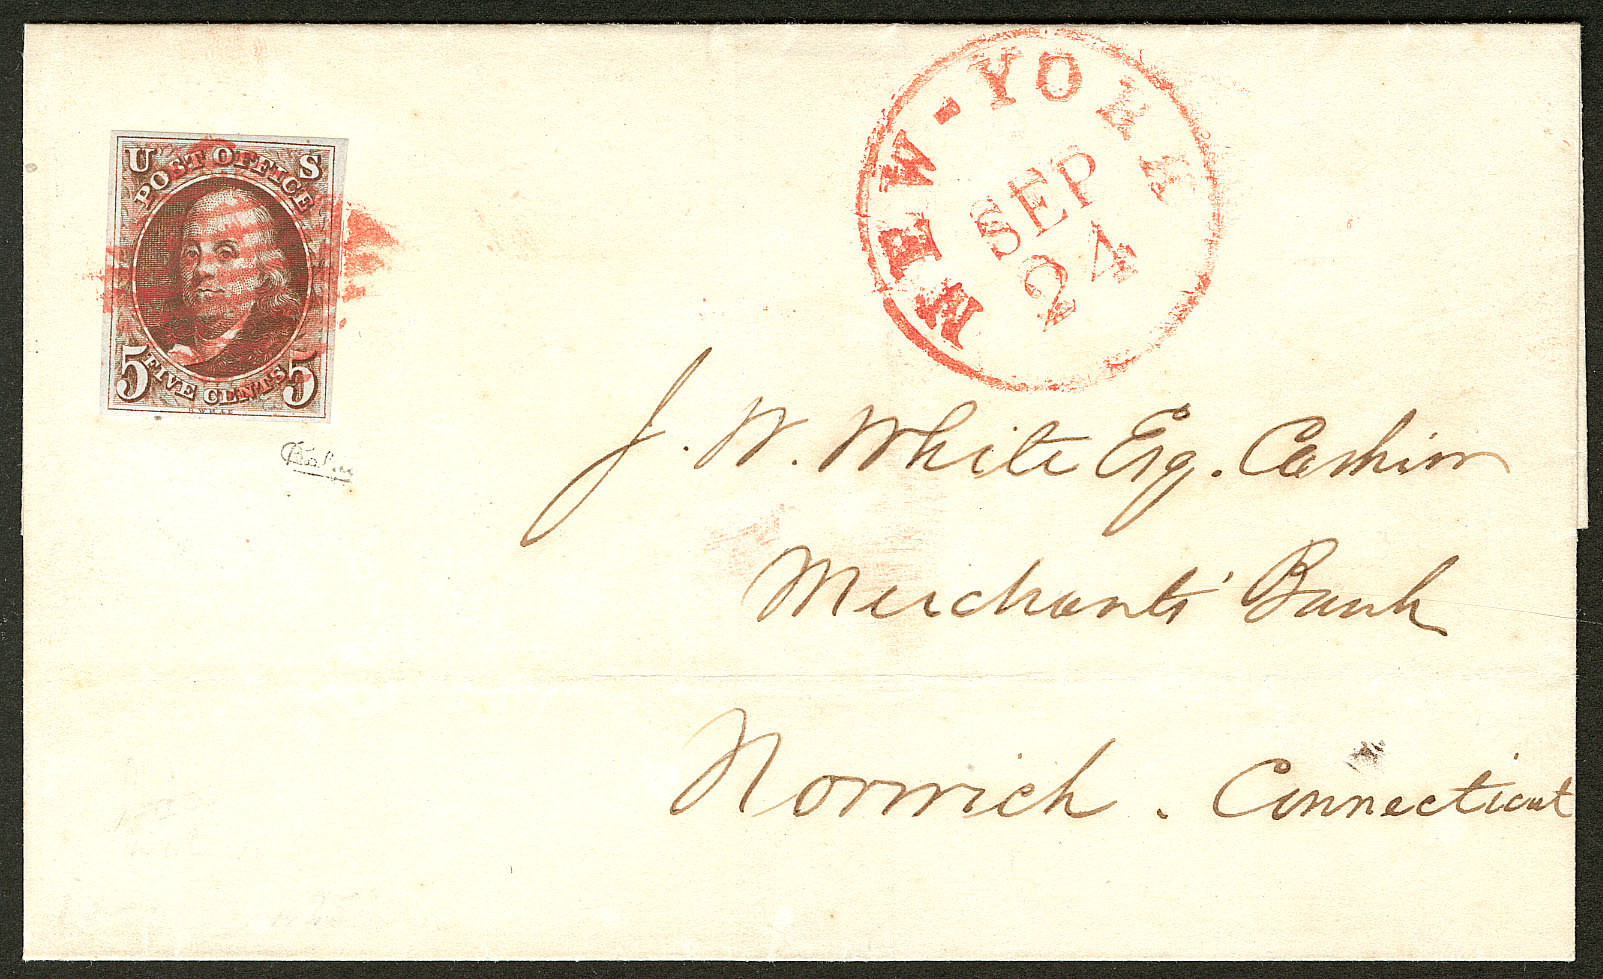 U S
POST OFFICE
5 FIVE CENTS 5
NEW-YORK
SEP
24
J. W. White Esq. Cashier
Merchants' Bank
Norwich. Connecticut